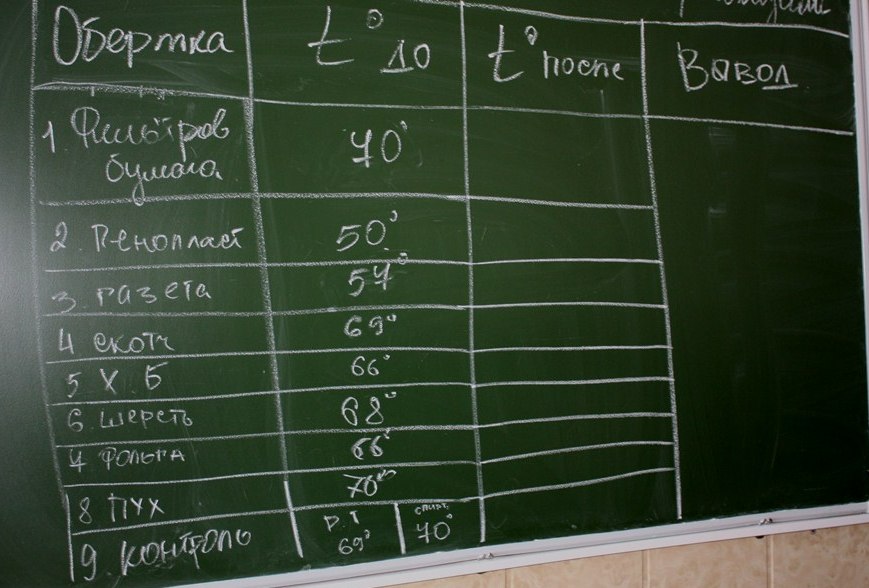 Обертка t° до t° после Вовод
1. Фильтров 70°
бумага
2. Пенопласт 50°
3. газета 57°
4 скотч 69°
5 Х.Б 66°
6. шерсть 68°
7 Фольга 66°
8 ПУХ 70°
9. контроль Р.Т 69° спирт. 70°